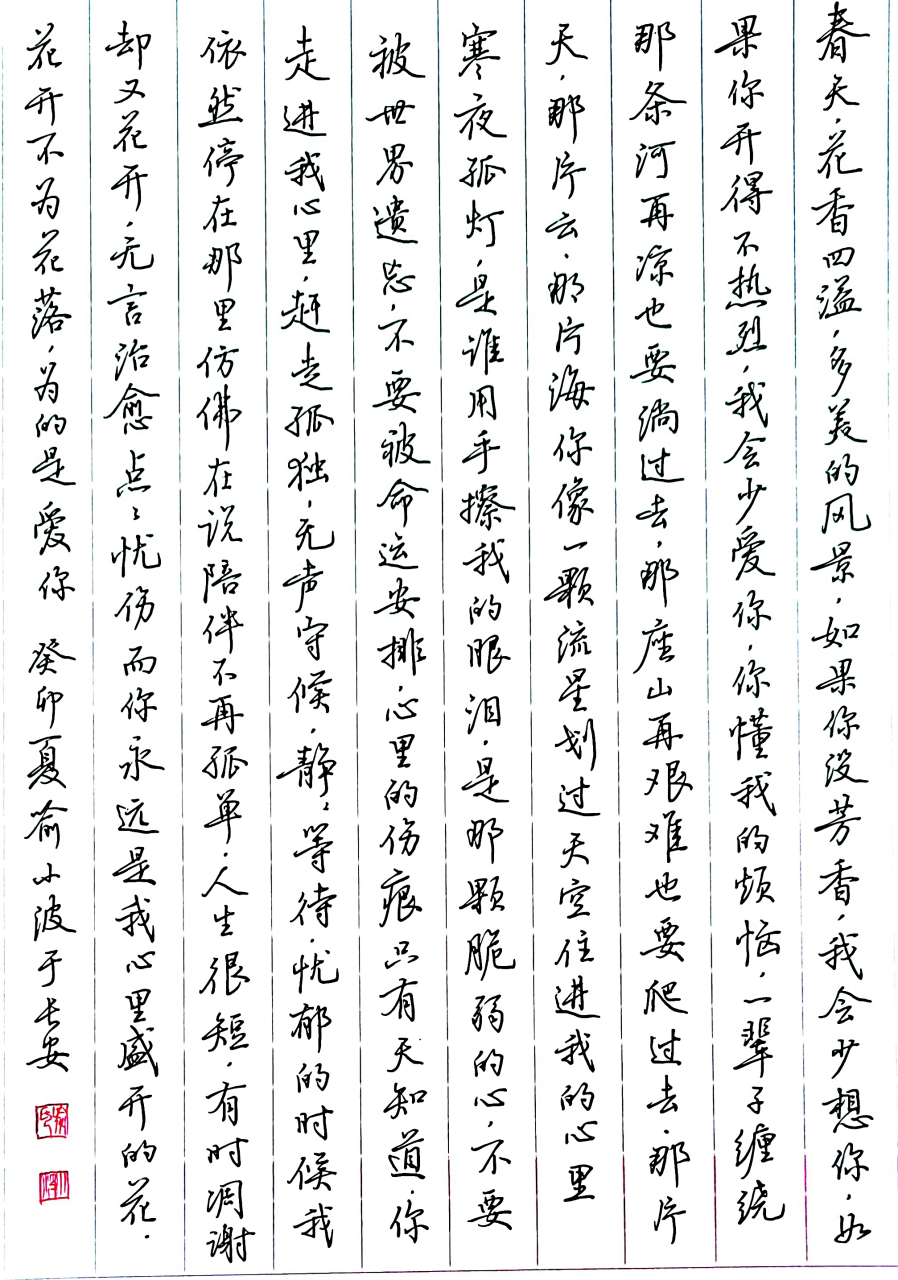 春天,花香四溢,多美的风景,如果你没芳香,我会少想你,如
果你开得不热烈,我会少爱你,你懂我的烦恼,一辈子缠绕
那条河再凉也要淌过去,那座山再艰难也要爬过去,那片
天,那片云,那片海你像一颗流星划过天空住进我的心里
寒夜孤灯,是谁用手擦我的眼泪,是那颗脆弱的心,不要
被世界遗忘,不要被命运安排,心里的伤痕只有天知道,你
走进我心里,赶走孤独,无声守候,静々等待,忧郁的时候我
依然停在那里仿佛在说陪伴不再孤单,人生很短,有时凋谢
却又花开,无言治愈点々忧伤而你永远是我心里盛开的花.
花开不为花落,为的是爱你 癸卯夏喻小波于长安